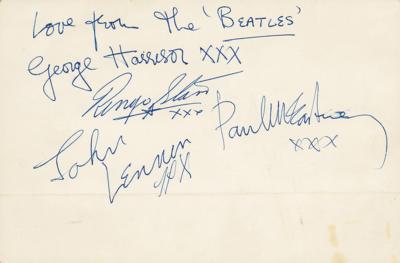 Love from The 'BEATLES'
George Harrison XXX
Ringo Starr
xxx
John
Lennon
XXX
Paul McCartney
xxx